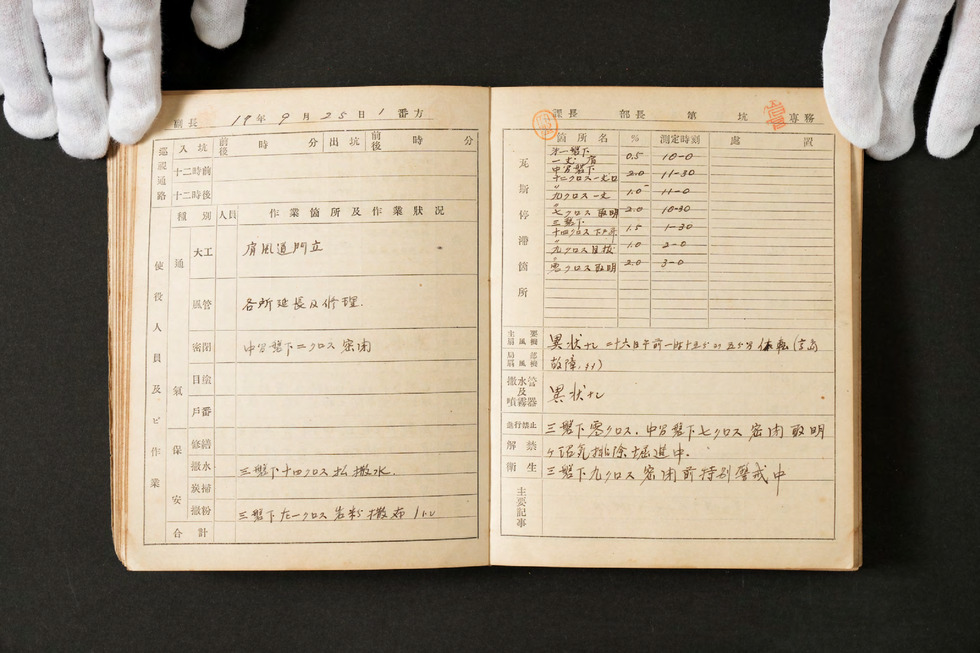 副長 19年9月25日1番方
巡視通路 入坑 前後 時 分 出坑 前後 時 分
十二時前
十二時後
使役人員及ビ作業
種別 人員 作業箇所及作業状況
通気
大工 肩風道門立
風管 各所延長及修理.
密閉 中台盤下ニクロス密閉
目塗
戸番
保安
修繕
撒水 三盤下十四クロス払撒水.
炭掃
撒粉 三盤下九一クロス岩粉撒布
合計
課長 部長 第 坑 専務
瓦斯停滞箇所
箇所名 % 測定時刻 処置
一丈肩 0.5 10-0
十二クロス一丈口 2.0 11-30
〃九クロス一丈 1.0 11-0
〃七クロス取明 2.0 10-30
三盤下
十四クロス 1.5 1-30
〃九クロス目抜 1.0 2-0
〃零クロス取明 2.0 3-0
主要扇風機 異状ナレ 二十六日午前一時十五分
局部扇風機 故障
撒水管及噴霧器 異状ナレ
進行禁止 三盤下零クロス.中台盤下七クロス密閉取明
解禁 排除堀進中.
衛生 三盤下九クロス密閉前特別警戒中
主要記事